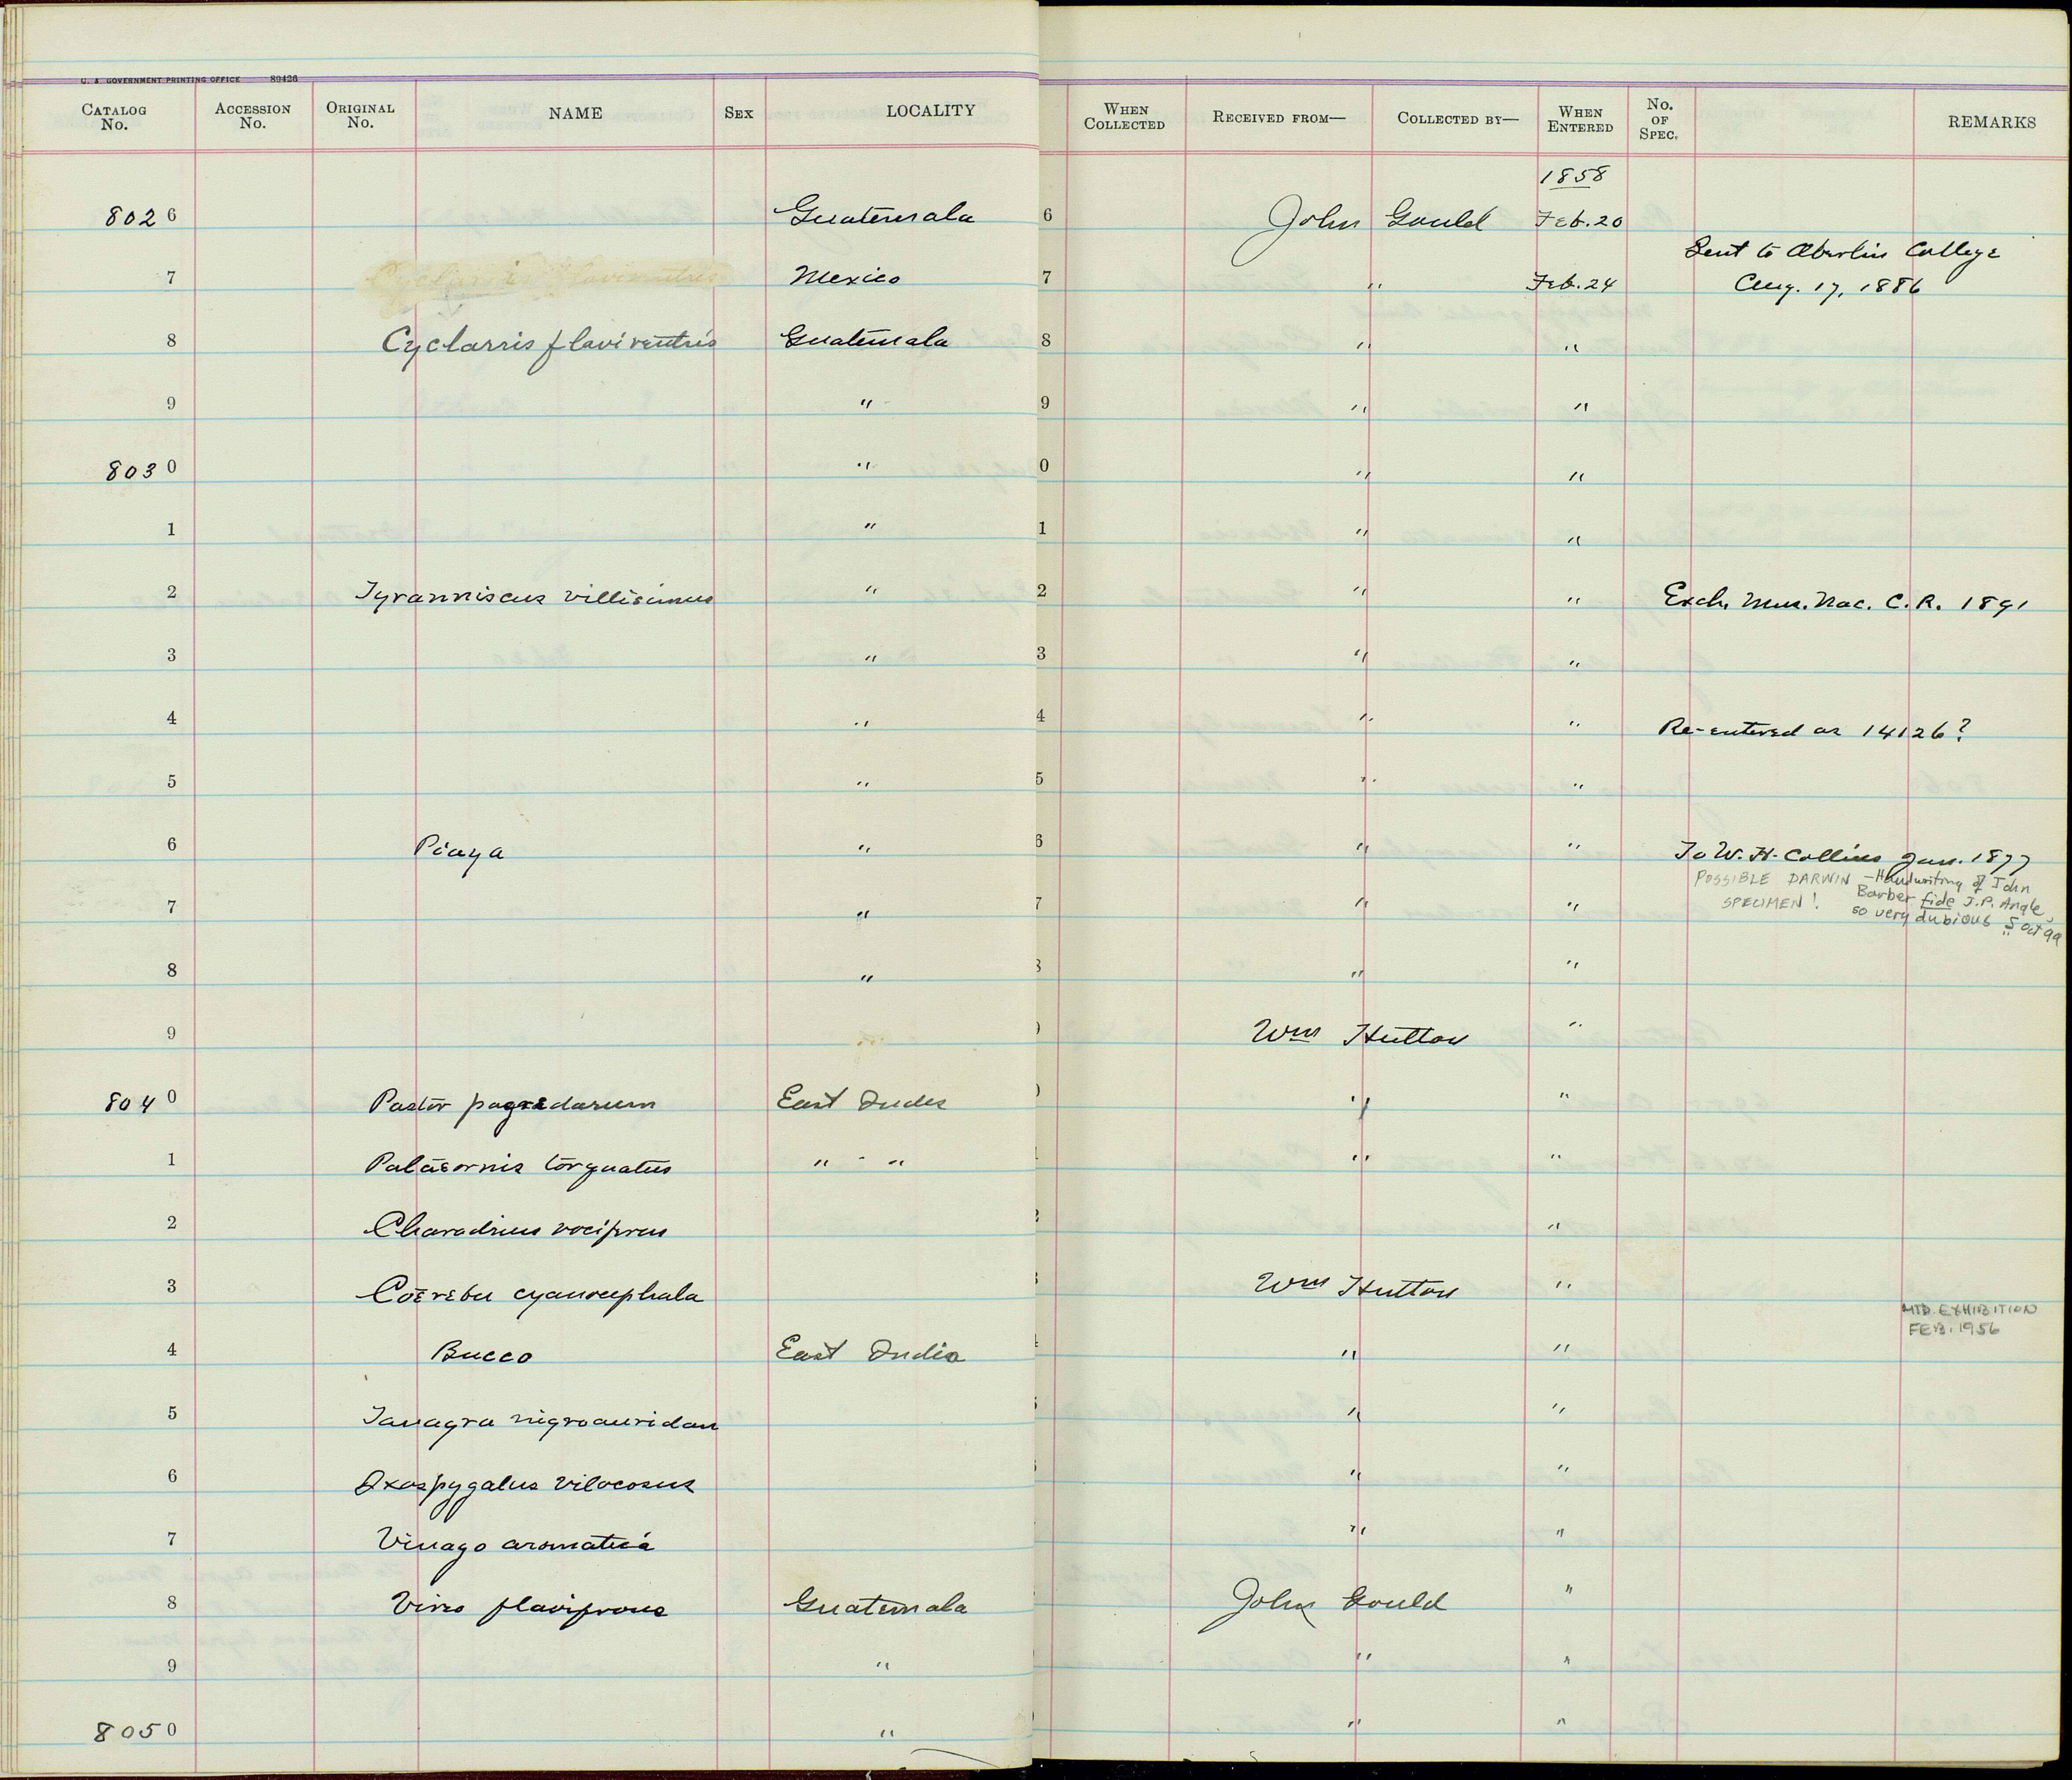 U. S. GOVERNMENT PRINTING OFFICE 80426
CATALOG No. ACCESSION No. ORIGINAL No. NAME SEX LOCALITY WHEN COLLECTED RECEIVED FROM— COLLECTED BY— WHEN ENTERED No. OF SPEC. REMARKS
1858
8026 Guatemala 6 John Gould Feb. 20
Sent to Oberlin College
7 Cyclarris flaviventris Mexico 7 " Feb. 24 Aug. 17, 1886
8 Cyclarris flaviventris Guatemala 8 " "
9 " 9 " "
8030 " 0 " "
1 " 1 " "
2 Tyranniscus villisimus " 2 " " Exch. Mus. Nac. C. R. 1891
3 " 3 " "
4 " 4 " " Re-entered as 14126?
5 " 5 " "
6 Piaya " 6 " " To W. H. Collins Jan. 1877
POSSIBLE DARWIN SPECIMEN! — Handwriting of John Barber fide J.P. Angle, so very dubious 5 Oct 99
7 " 7 " "
8 " 8 " "
9 Wm Hutton "
8040 Pastor pagodarum East Indes " "
1 Palaeornis torquatus " " " "
2 Charadrius vociferus "
3 Coereba cyanocephala Wm Hutton "
MTD. EXHIBITION
FEB. 1956
4 Bucco East India " "
5 Tanagra nigroauridan " "
6 Oxaspygalus vilocosus " "
7 Vinago aromatica " "
8 Vireo flavifrons Guatemala John Gould "
9 " " "
8050 " " "